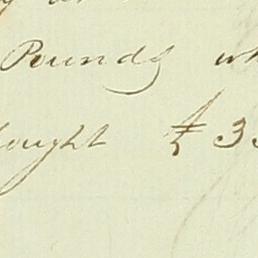 Pounds wh
bought £ 33